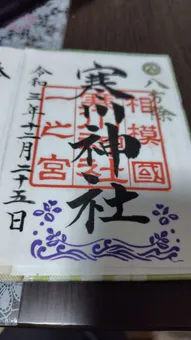 八方除
相模國
寒川神社
一之宮
令和三年十二月二十五日